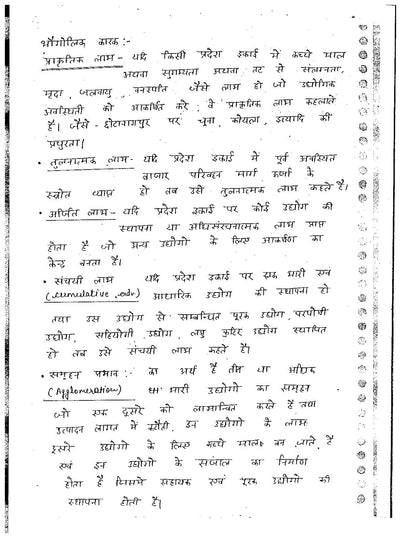 भौगोलिक कारक :-
प्राकृतिक लाभ - यदि किसी प्रदेश इकाई में कच्चे माल
अथवा सुगम्यता अथवा तट से संलग्नता,
मृदा, जलवायु, वनस्पति जैसे लाभ हो जो उद्योगिक
अवस्थिती को आकर्षित करे, वे प्राकृतिक लाभ कहलाते
है। जैसे - छोटानागपुर पर चूना, कोयला, इत्यादि की
प्रचुरता।
• तुलनात्मक लाभ - यदि प्रदेश इकाई में पूर्व अवस्थित
बाजार परिवहन मार्ग ऊर्जा के
स्त्रोत व्याप्त हो तब उसे तुलनात्मक लाभ कहते है।
• अर्जित लाभ - यदि प्रदेश इकाई पर कोई उद्योग की
स्थापना या अधिसंरचनात्मक लाभ प्राप्त
होता है जो अन्य उद्योगो के लिए आकर्षण का
केन्द्र बनता है।
• संचयी लाभ यदि प्रदेश इकाई पर एक भारी एवं
(cumulative adv) आधारिक उद्योग की स्थापना हो
तथा उस उद्योग से सम्बन्धित पूरक उद्योग, परपोषी
उद्योग, सहयोगी उद्योग, लघु कुटिर उद्योग स्थापित
हो तब उसे संचयी लाभ कहते है।
• समूहन प्रभाव :- का अर्थ है तीन या अधिक
(Agglomeration) भारी उद्योगो का समूहन
जो एक दूसरे को लाभान्वित करते है तथा
उत्पादन लागत में कटौती, इन उद्योगो के लाभ
दूसरे उद्योगो के लिए कच्चे माल बन जाते है
एवं इन उद्योगो के संजाल का निर्माण
होता है जिसमे सहायक एवं पूरक उद्योगो की
स्थापना होती है।